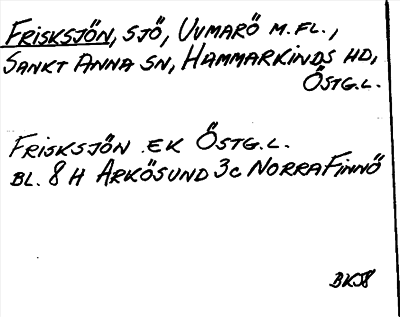 FRISKSJÖN, SJÖ, UVMARÖ M.FL.,
SANKT ANNA SN, HAMMARKINDS HD,
ÖSTG.L.
FRISKSJÖN .EK ÖSTG.L.
BL. 8 H ARKÖSUND 3c NORRA FINNÖ
BKJ8